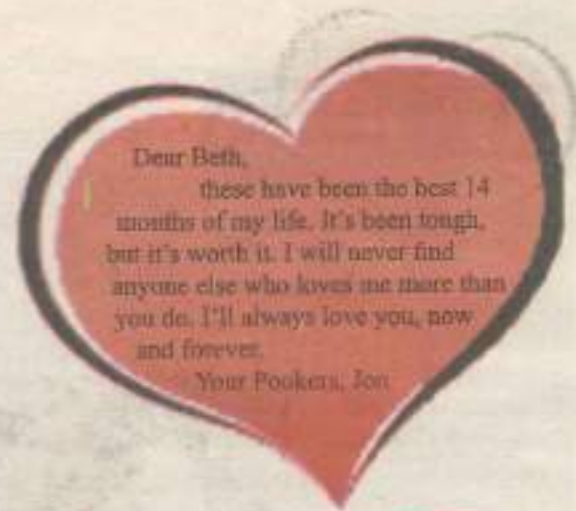 Dear Beth,
these have been the best 14
months of my life. It's been tough,
but it's worth it. I will never find
anyone else who loves me more than
you do. I'll always love you, now
and forever.
Your Pookers, Jon